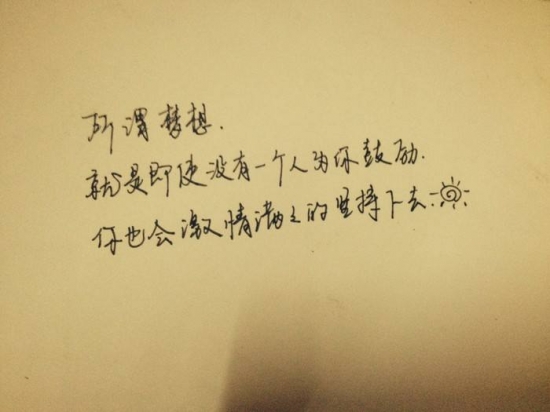 所谓梦想.
就是即使没有一个人为你鼓励.
你也会激情满之的坚持下去